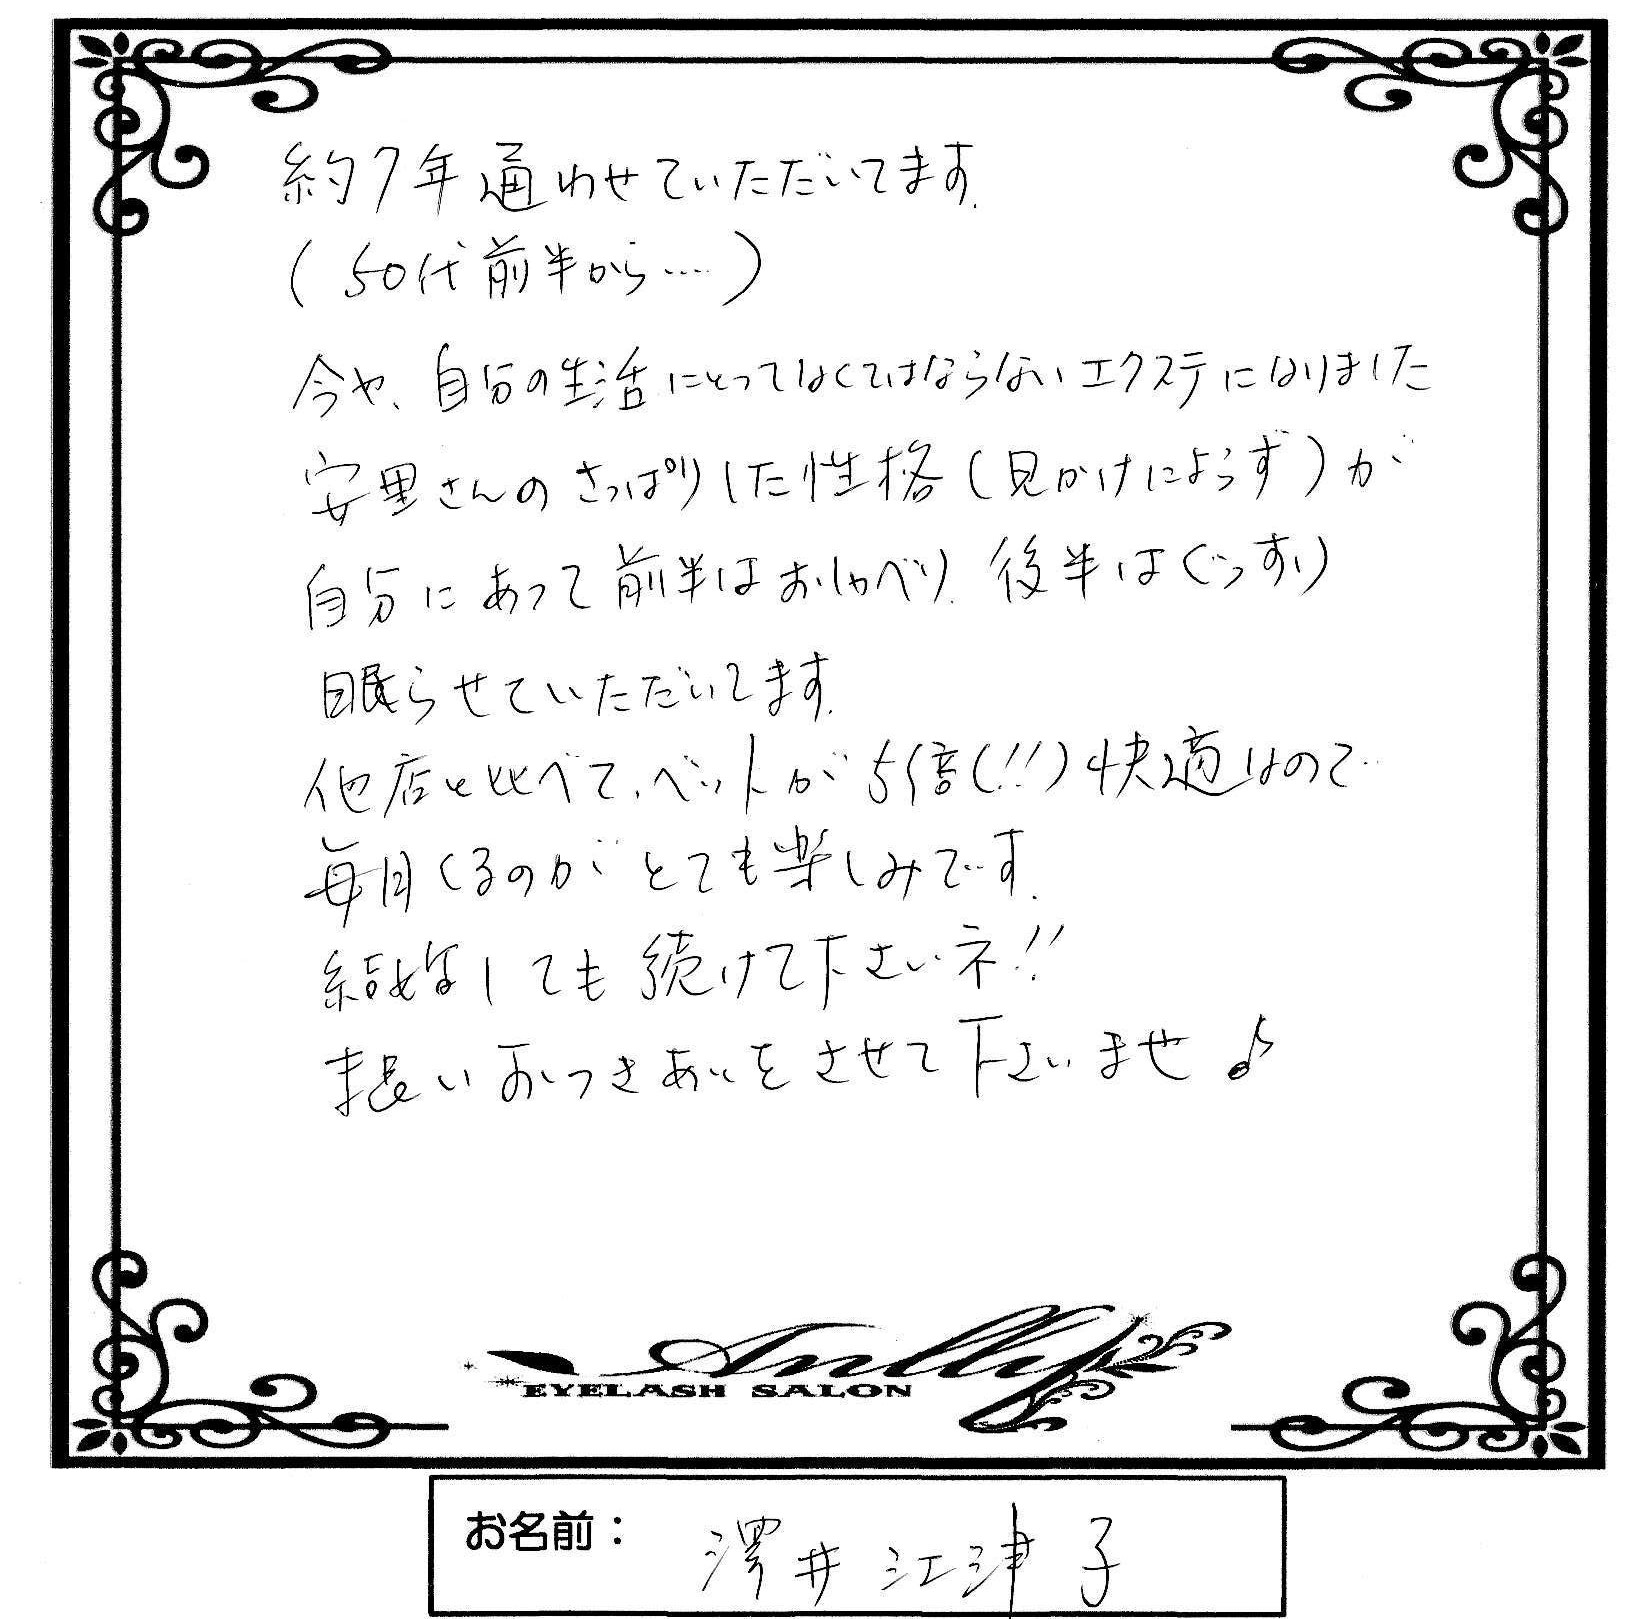 約7年通わせていただいてます.
(50代前半から....)
今や、自分の生活にとってなくてはならないエクステになりました
安里さんのさっぱりした性格(見かけによらず)が
自分にあって前半はおしゃべり、後半はぐっすり
眠らせていただいてます.
他店と比べて、ベットが5倍(!!)快適なので
毎月くるのがとても楽しみです.
結婚しても続けて下さいネ!!
末長いおつきあいをさせて下さいませ♪
Anlly
EYELASH SALON
お名前: 澤井 江津子